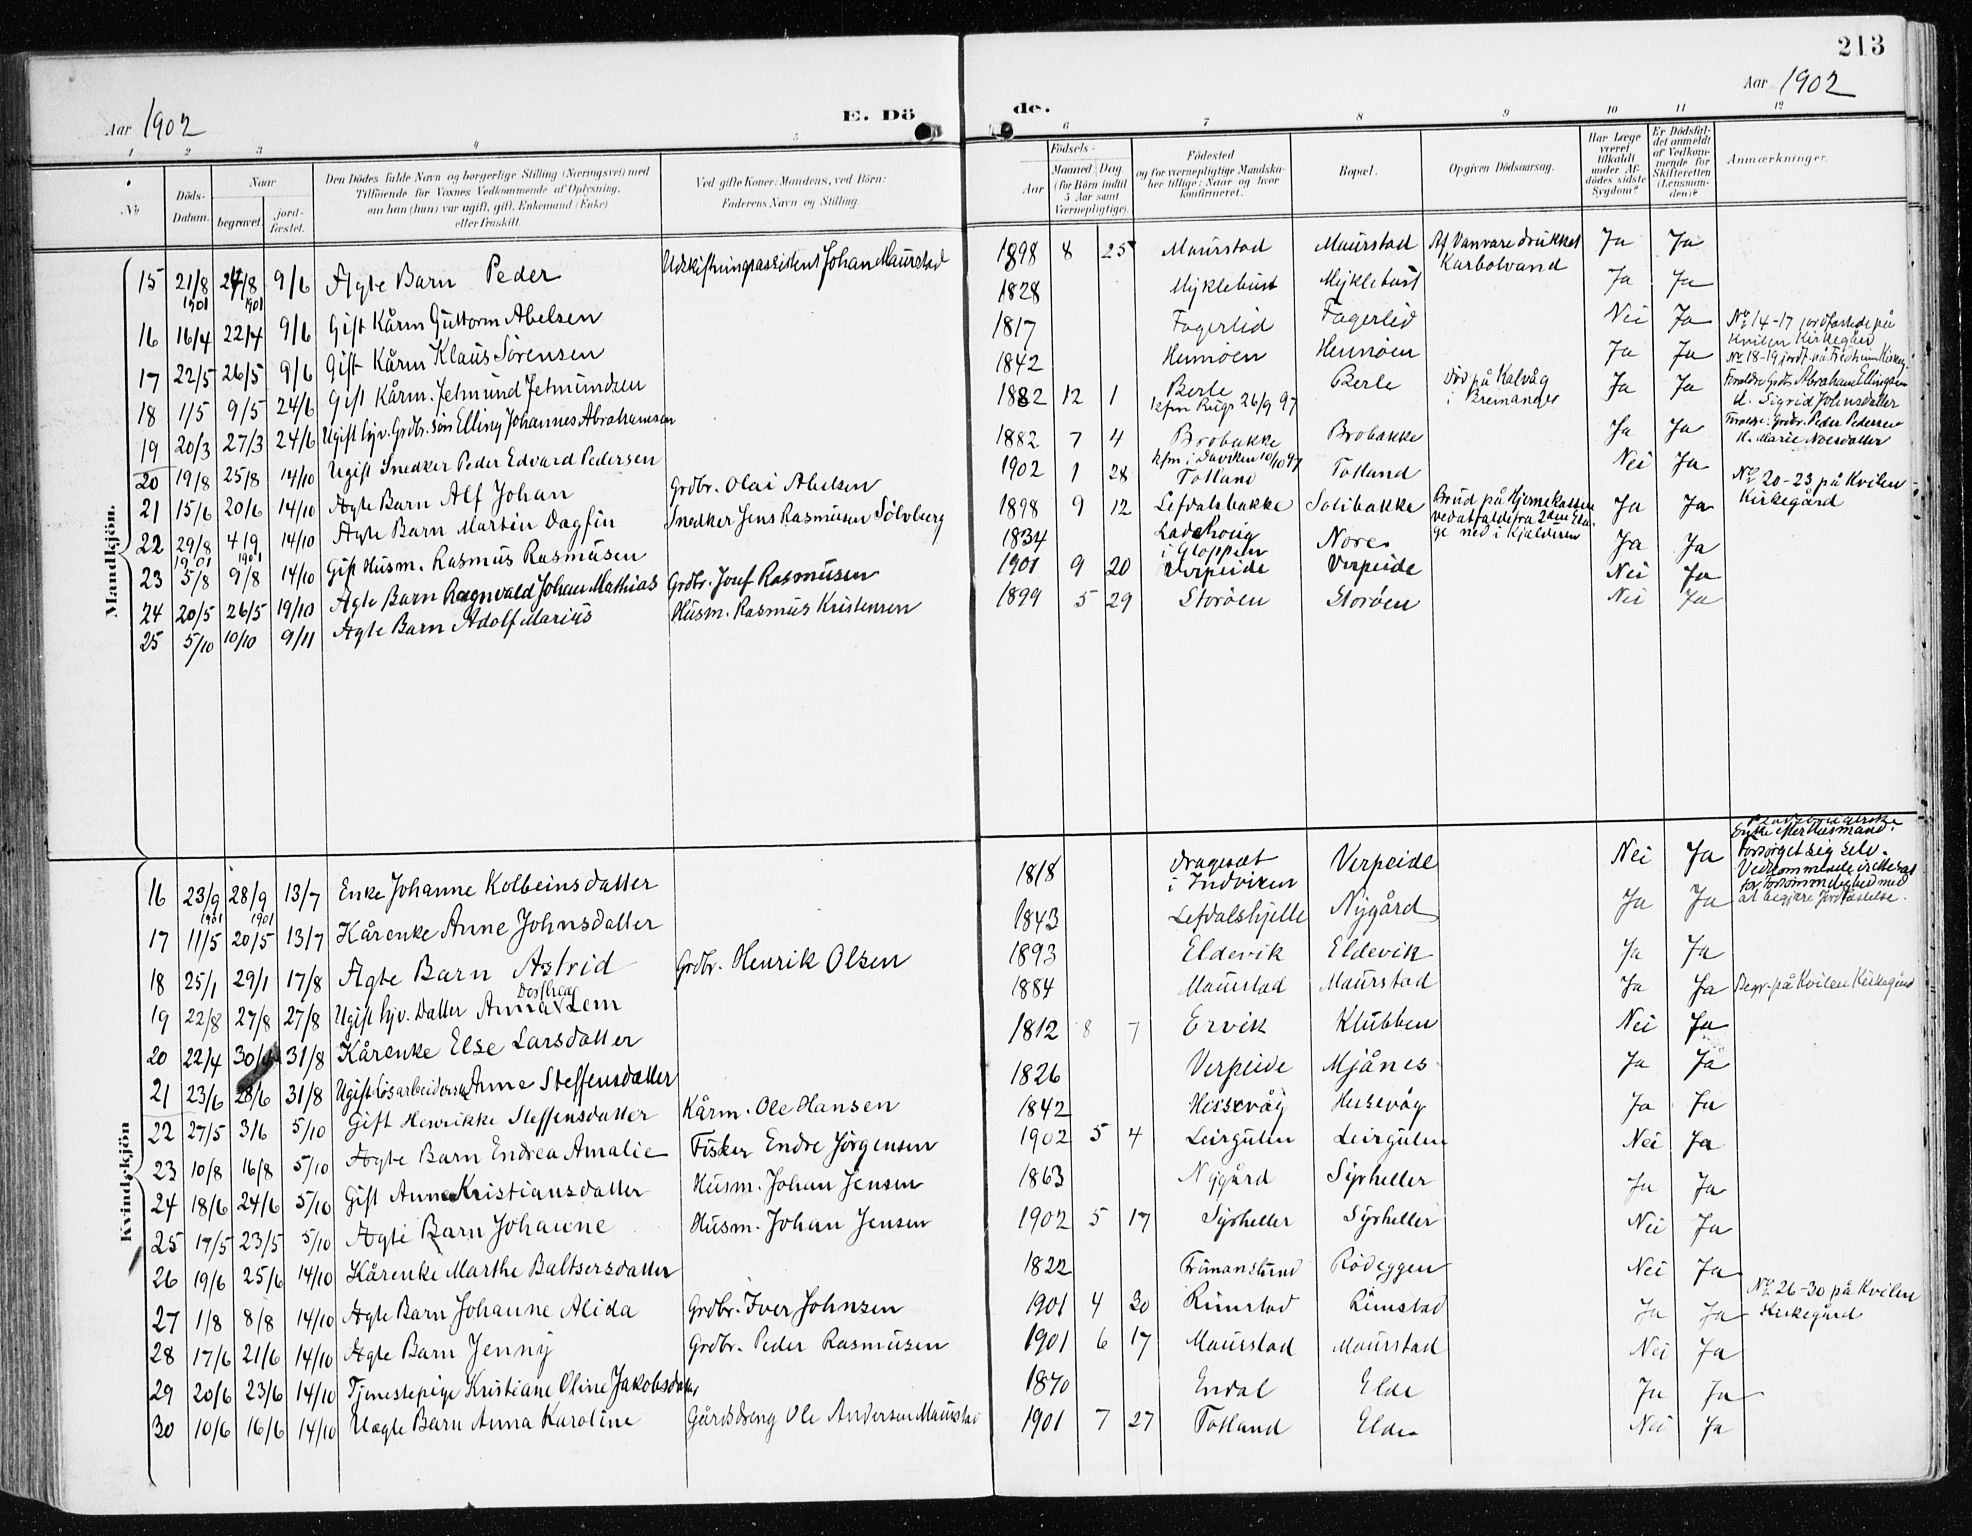 213
Aar 1902
E. Dö
de.
Aar 1902
1 2 3 4 5 6 7 8 9 10 11 12
No
Döds-Datum.
Naar
begravet.
jord-fæstet.
Den Dödes fulde Navn og borgerlige Stilling (Næringsvei) med
Tilföiende for Voxnes Vedkommende af Oplysning,
om han (hun) var ugift, gift, Enkemand (Enke)
eller fraskilt.
Ved gifte Koner: Mandens, ved Börn:
Faderens Navn og Stilling.
Födsels-
Aar
Maaned. Dag
(for Börn indtil
5 Aar samt
Værnepligtige).
Födested
og for værnepligtige Mandska-
ber tillige: Naar og hvor
konfirmeret.
Bopæl.
Opgiven Dödsaarsag.
Har Læge
været
tilkaldt
under Af-
dödes sidste
Sygdom?
Er Dödsfal-
det anmeldt
af Vedkom-
mende for
Skifteretten
(Lensman-
den)?
Anmærkninger.
Mandkjön.
15 21/8 1901 24/8 1901 9/6 Ægte Barn Peder Udskiftningsassistent Johan Maurstad 1898 8 25 Maurstad Maurstad Af Vanvare drukket Karbolvand Ja Ja
16 16/4 22/4 9/6 Gift Kårm Guttorm Abelsen 1828 Myklebust Myklebust Ja Ja
17 22/5 26/5 9/6 Gift Kårm Klaus Sörensen 1817 Fagerlid Fagerlid Nei Ja No 14-17 jordfæstede på Kvilen Kirkegård
18 1/5 9/5 24/6 Gift Kårm. Jetmund Jetmundsen 1842 Hennöen Hennöen Ja Ja No 18-19 jordf. på
19 20/3 27/3 24/6 Ugift hjv. Grdbr. sön Elling Johannes Abrahamsen 1882 12 1 Berle kfm Rugs 26/9 97 Berle Död på Kalvåg i Bremanger Ja Ja Forældre Grdbr. Abraham Ellingsen o. Sigrid Johnsdatter
20 19/8 25/8 14/10 Ugift Snedker Peder Edvard Pedersen 1882 7 4 Brobakke kfm i Daviken 10/10 97 Brobakke Ja Ja Forældre: Grdbr. Peder Pedersen o. Marie
21 15/6 20/6 14/10 Ægte Barn Alf Johan Grdbr. Olai Abelsen 1902 1 28 Totland Totland Nei Ja No 20-23 på Kvilen Kirkegård
22 29/8 1901 4/9 1901 14/10 Ægte Barn Martin Dagfin Snedker Jens Rasmusen Sölvberg 1898 9 12 Lefdalsbakke Solibakke Brud på Hjernekassen ved at falde fra 2den Etage ned i Kjelderen Ja Ja
23 5/8 9/8 14/10 Gift Husm. Rasmus Rasmusen 1834 i Gloppen Nore Ja Ja
24 20/5 26/5 19/10 Ægte Barn Ragnvald Johan Mathias Grdbr. Josef Rasmusen 1901 9 20 Verpeide Verpeide Nei Ja
25 5/10 10/10 9/11 Ægte Barn Adolf Marius Husm. Rasmus Kristensen 1899 5 29 Storöen Storöen Nei Ja
Kvindekjön
16 23/9 1901 28/9 1901 13/7 Enke Johanne Kolbeinsdatter 1818 Dragesæt i Indviken Verpeide Nei Ja Enke efter Husmand. Forsörget sig selv. Vedkommende irettesat for Forsömmelighed med at begjære Jordfæstelse.
17 11/5 20/5 13/7 Kårenke Anne Johnsdatter 1843 Lefdalshjelle Nygård Ja Ja
18 25/1 29/1 17/8 Ægte Barn Astrid Grdbr. Henrik Olsen 1893 Eldevik Eldevik Ja Ja
19 22/8 27/8 27/8 Ugift hjv. Datter Anna Dorthea Lem 1884 Maurstad Maurstad Ja Ja Begr. på Kvilen Kirkegård
20 22/4 30/4 31/8 Kårenke Else Larsdatter 1812 8 7 Ervik Klubben Nei Ja
21 23/6 28/6 31/8 Ugift lösarbeiderske Anne Steffensdatter 1826 Verpeide Mjånes Ja Ja
22 27/5 3/6 5/10 Gift Henrikke Steffensdatter Kårm. Ole Hansen 1842 Hessevåg Hessevåg Ja Ja
23 10/8 16/8 5/10 Ægte Barn Endrea Amalie Fisker Endre Jörgensen 1902 5 4 Leirgulen Leirgulen Nei Ja
24 18/6 24/6 5/10 Gift Anna Kristiansdatter Husm. Johan Jensen 1863 Nygård Syrheller Ja Ja
25 17/5 23/5 5/10 Ægte Barn Johanne Husm. Johan Jensen 1902 5 17 Syrheller Syrheller Nei Ja
26 19/6 25/6 14/10 Kårenke Marthe Baltsersdatter 1822 Frimanslund Rödeggen Nei Ja
27 1/8 8/8 14/10 Ægte Barn Johanne Alida Grdbr. Iver Johnsen 1901 4 30 Rimstad Rimstad Ja Ja No 26-30 på Kvilen Kirkegård
28 17/6 21/6 14/10 Ægte Barn Jenny Grdbr. Peder Rasmusen 1901 6 17 Maurstad Maurstad Nei Ja
29 20/6 23/6 14/10 Tjenestepige Kristiane Oline Jakobsdatter 1870 Endal Elde Ja Ja
30 10/6 16/6 14/10 Uægte Barn Anna Karoline Gårdsdreng Ole Andersen Maurstad 1901 7 27 Totland Elde Nei Ja